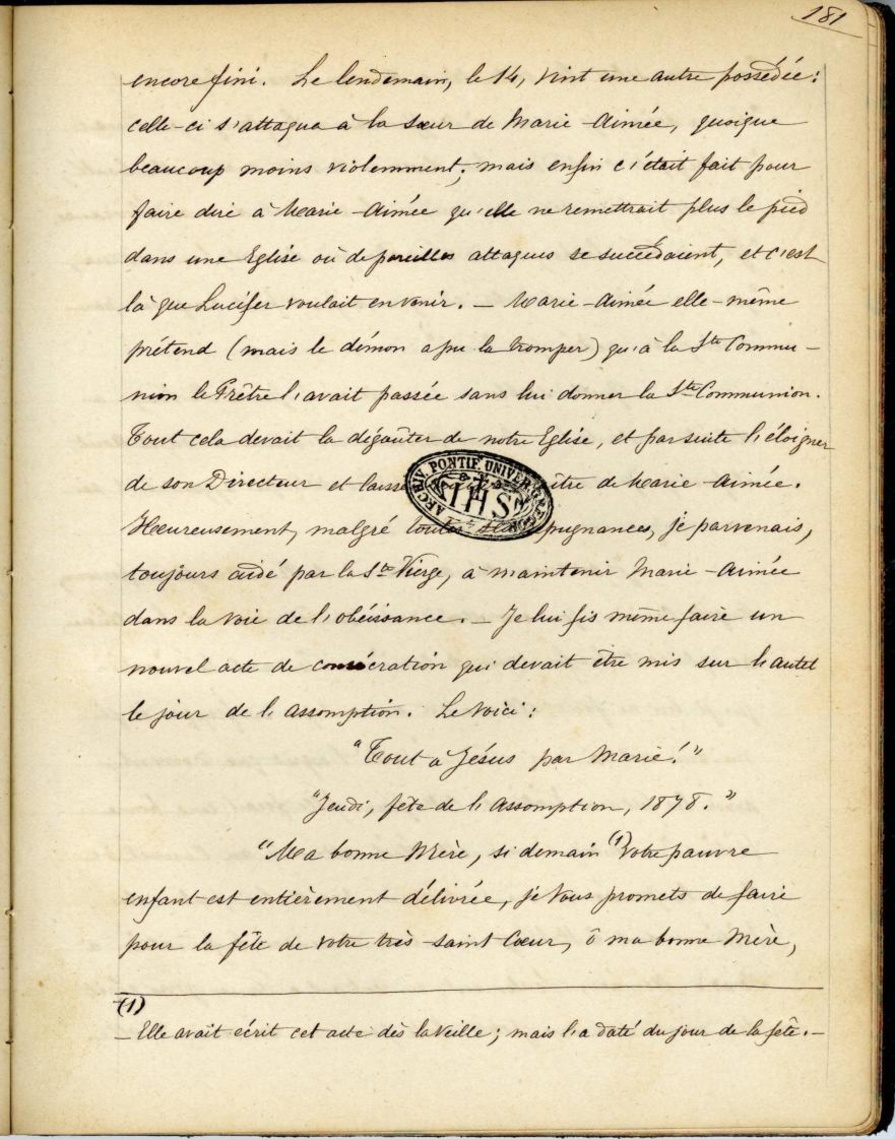 181
encore fini. Le lendemain, le 14, vint une autre possédée:
celle-ci s'attaqua à la sœur de Marie-Aimée, quoique
beaucoup moins violemment; mais enfin c'était fait pour
faire dire à Marie-Aimée qu'elle ne remettrait plus le pied
dans une Eglise où de pareilles attaques se succédaient, et c'est
là que Lucifer voulait en venir. _ Marie-Aimée elle-même
prétend (mais le démon a pu la tromper) qu'à la Ste Commu-
nion le Prêtre l'avait passée sans lui donner la Ste Communion.
Tout cela devait la dégoûter de notre Eglise, et par suite l'éloigner
de son Directeur et laisse ître de Marie-Aimée.
ARCHIV. PONTIF. UNIVER. GREGOR.
IHS
Heureusement, malgré toutes pugnances, je parvenais,
toujours aidé par la Ste Vierge, à maintenir Marie-Aimée
dans la voie de l'obéissance. _ Je lui fis même faire un
nouvel acte de consécration qui devait être mis sur l'autel
le jour de l'Assomption. Le voici:
"Tout à Jésus par Marie!"
"Jeudi, fête de l'Assomption, 1878."
"Ma bonne Mère, si demain (1) votre pauvre
enfant est entièrement délivrée, je vous promets de faire
pour la fête de votre très-saint Cœur, ô ma bonne Mère,
(1)
_ Elle avait écrit cet acte dès la veille; mais l'a daté du jour de la fête. _